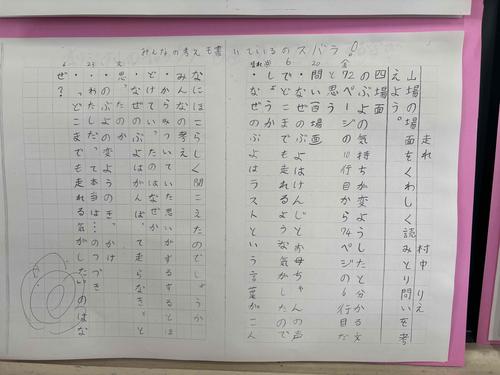 みんなの考えも書いているのスバラ!
走れ
村中 りえ
山場の場面をくわしく読みとり問いを考
えよう。
四場面
のぶよの気持ちが変ようしたと分かる文
72ページの10行目から74ページの6行目だ
と思う
問い四場面
20
・なぜのぶよはけんじとお母ちゃんの声
6
でどこまでも走れるような気がしたので
しょうか
・なぜのぶよはラストという言葉がこん
なにほこらしく聞こえたのでしょうか
みんなの考え
・からみついていた思いがするするとほ
どけていったのはなぜか
・なぜのぶよはがんばって走らなきゃと
思ったのか
・のぶよの変ようのきっかけ
23
・わたしだって本当は…のつづき
・どこまでも走れる気がしたのはな
6
ぜ?